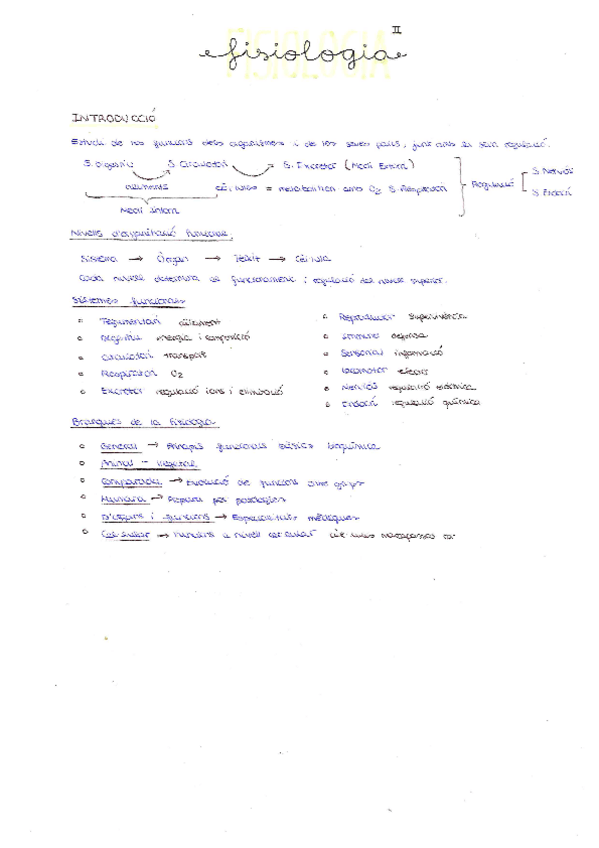 II
fisiologia
FISIOLOGIA
INTRODUCCIÓ
Estudi de les funcions dels organismes i de les seves parts, junt amb la seva regulació.
S. Digestiu S. Circulatori S. Excretor (Medi Extern)
aliments cèl·lules = metabolitzen amb O2 S. Respiratori
Medi intern
Regulació
S. Nerviós
S. Endocrí
Nivells d'organització funcional:
Sistema → Òrgan → Teixit → Cèl·lula
Cada nivell determina el funcionament i regulació del nivell superior.
Sistemes funcionals
Tegumentari aïllament
Digestiu energia i composició
Circulatori transport
Respiratori O2
Excretor regulació ions i eliminació
Reproductor supervivència
Immune defensa
Sensorial informació
Locomotor efector
Nerviós regulació elèctrica
Endocrí regulació química
Branques de la fisiologia
General → Principis funcionals bàsics bioquímica
Animal - Vegetal
Comparada → Evolució de funcions entre grups
Humana → per patologies
D'òrgans i funcions → Especialitats mèdiques
Cel·lular → Funcions a nivell cel·lular